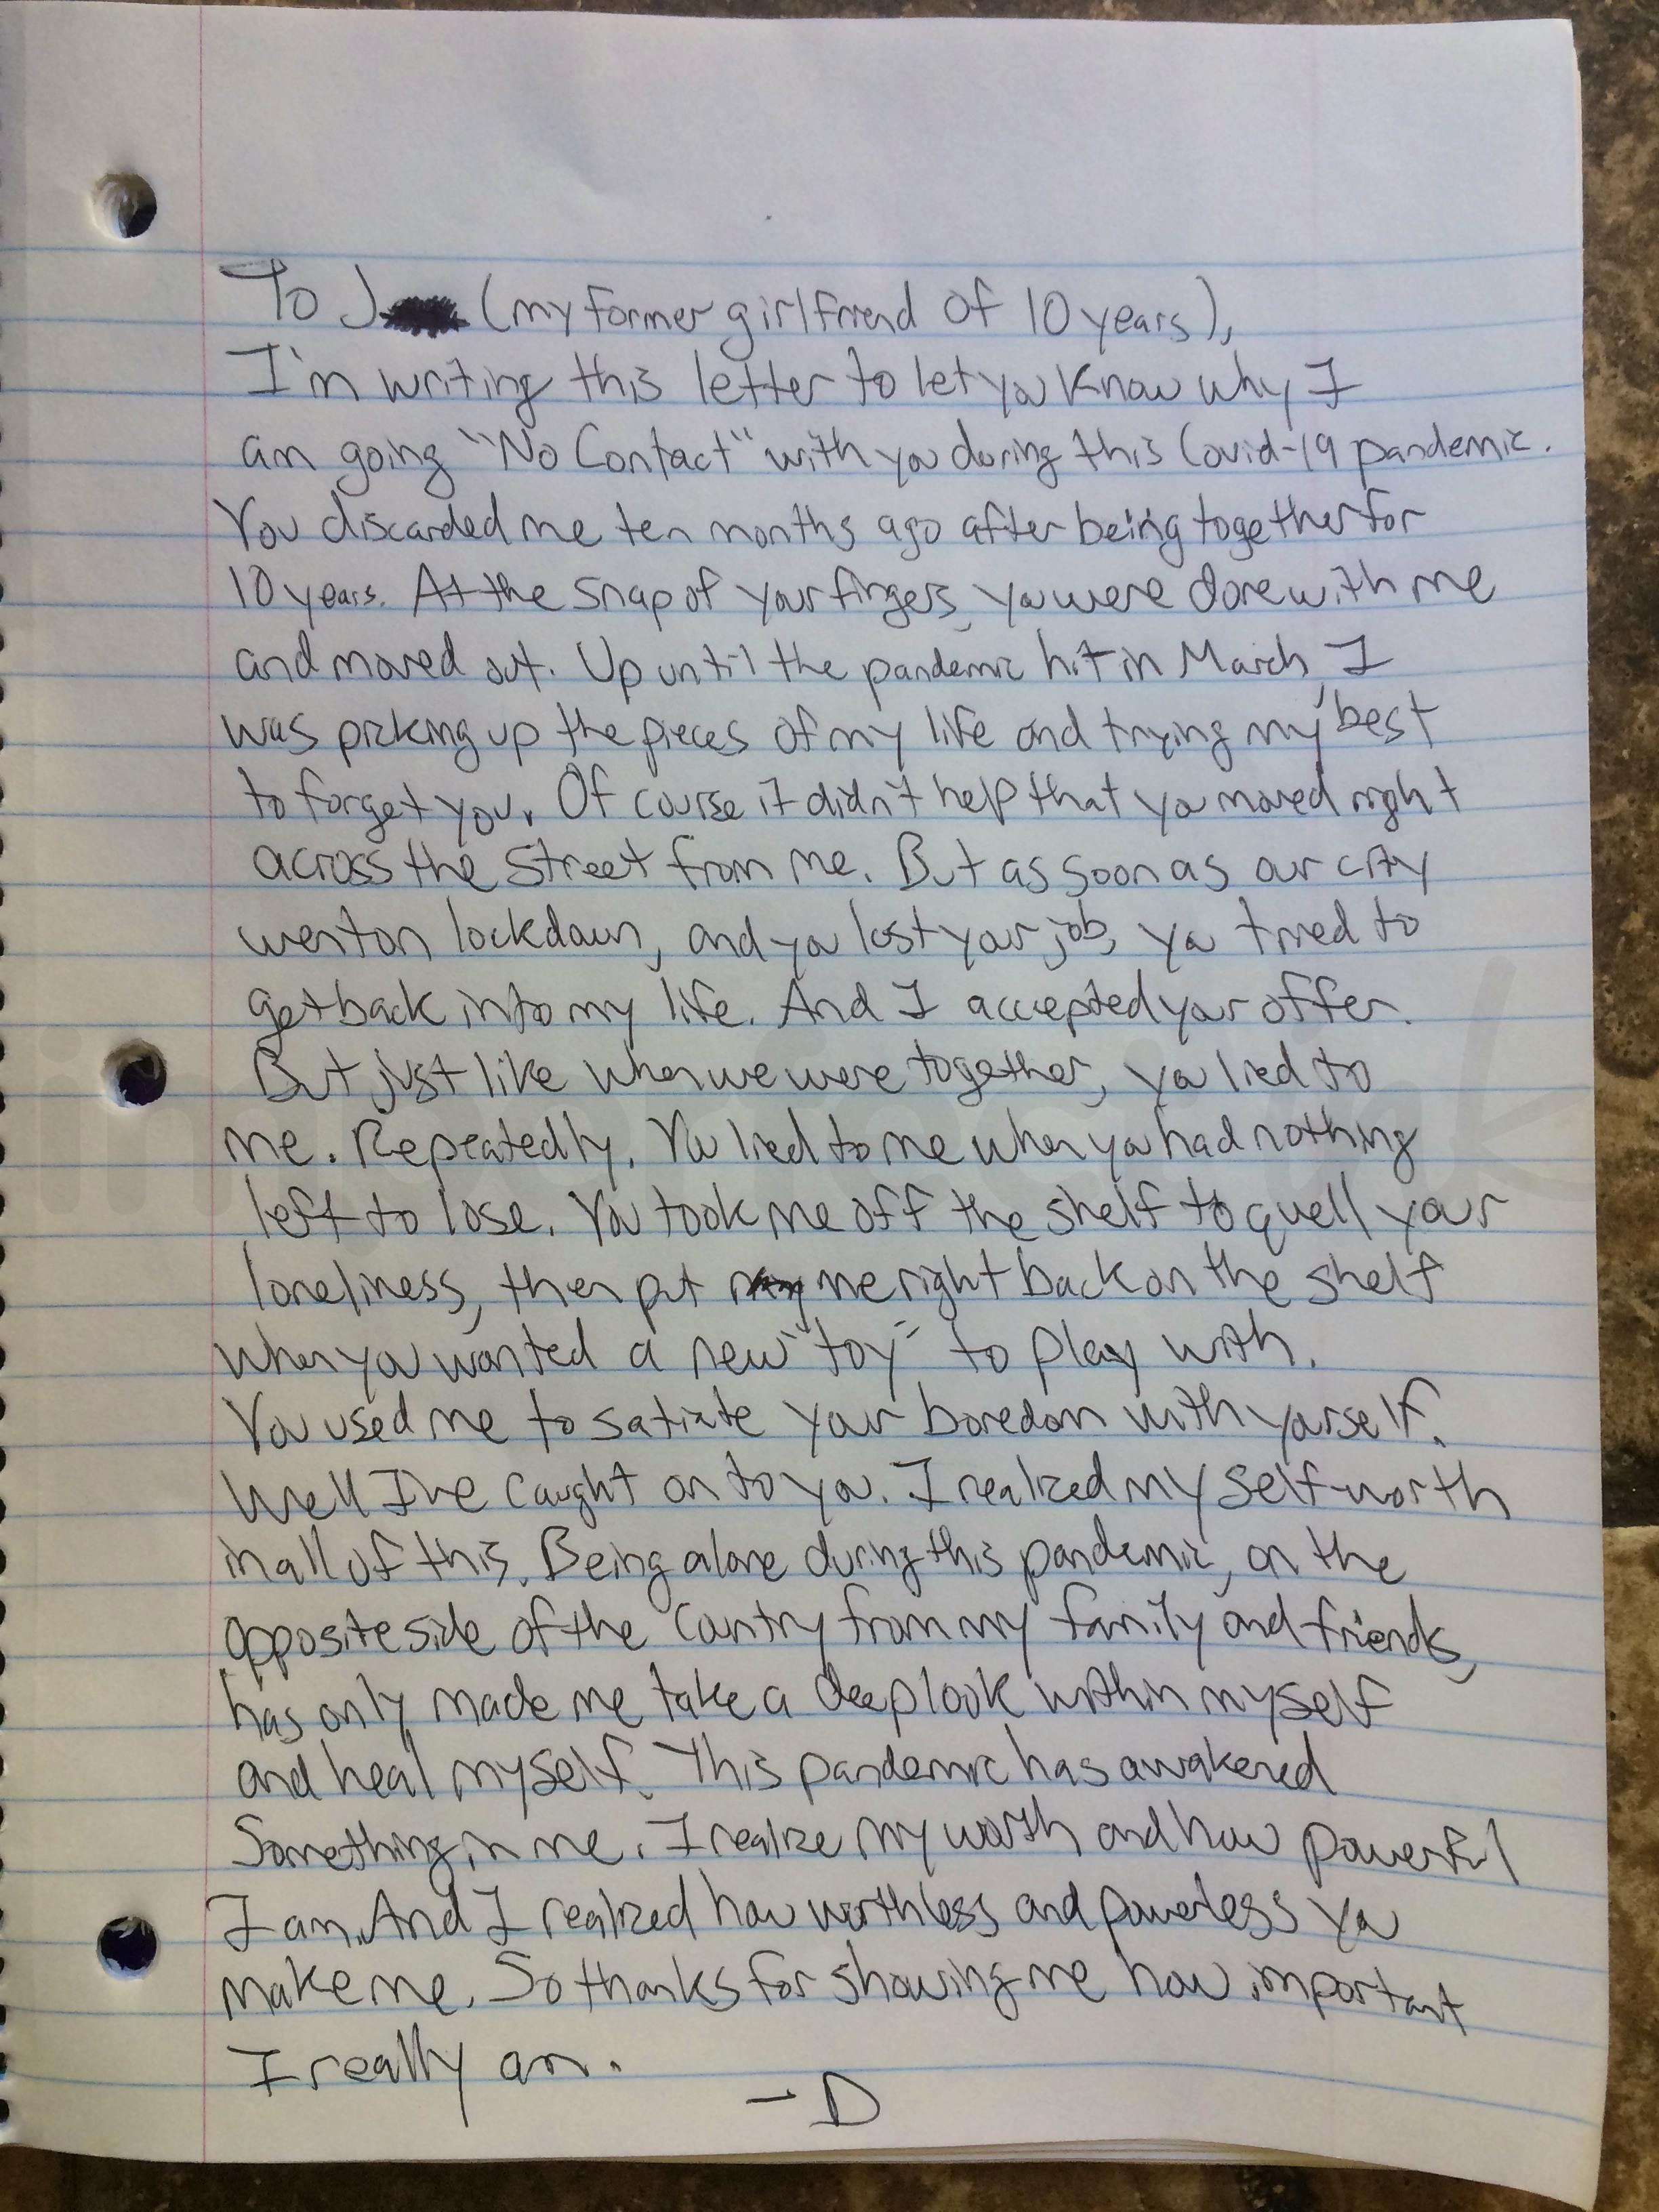 To J (my former girlfriend of 10 years),
I'm writing this letter to let you know why I
am going "No Contact" with you during this Covid-19 pandemic.
You discarded me ten months ago after being together for
10 years. At the snap of your fingers, you were done with me
and moved out. Up until the pandemic hit in March, I
was picking up the pieces of my life and trying my best
to forget you. Of course it didn't help that you moved right
across the street from me. But as soon as our city
went on lockdown, and you lost your job, you tried to
get back into my life. And I accepted your offer.
But just like when we were together, you lied to
me. Repeatedly. You lied to me when you had nothing
left to lose. You took me off the shelf to quell your
loneliness, then put me right back on the shelf
when you wanted a new "toy" to play with.
You used me to satiate your boredom with yourself.
Well I've caught on to you. I realized my self-worth
in all of this. Being alone during this pandemic, on the
opposite side of the country from my family and friends,
has only made me take a deep look within myself
and heal myself. This pandemic has awakened
something in me. I realize my worth and how powerful
I am. And I realized how worthless and powerless you
make me. So thanks for showing me how important
I really am.
- D